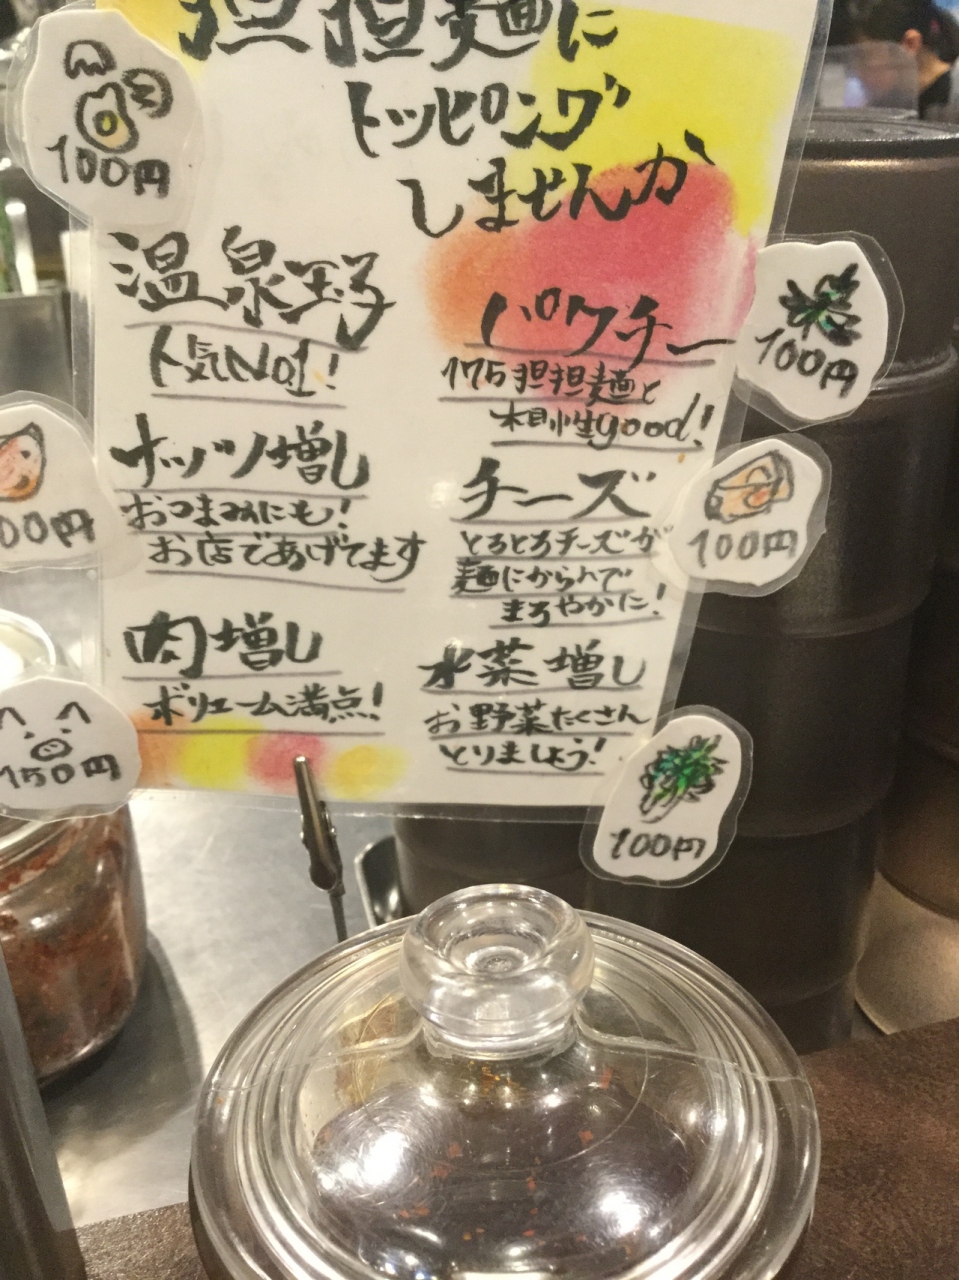 担担麺に
トッピング
しませんか
100円
温泉玉子
人気No1!
ナッツ増し
おつまみにも!
お店であげてます
00円
肉増し
ボリューム満点!
150円
パクチー
175担担麺と
相性good!
100円
チーズ
とろとろチーズが
麺にからんで
まろやかに!
100円
水菜増し
お野菜たくさん
とりましょう!
100円